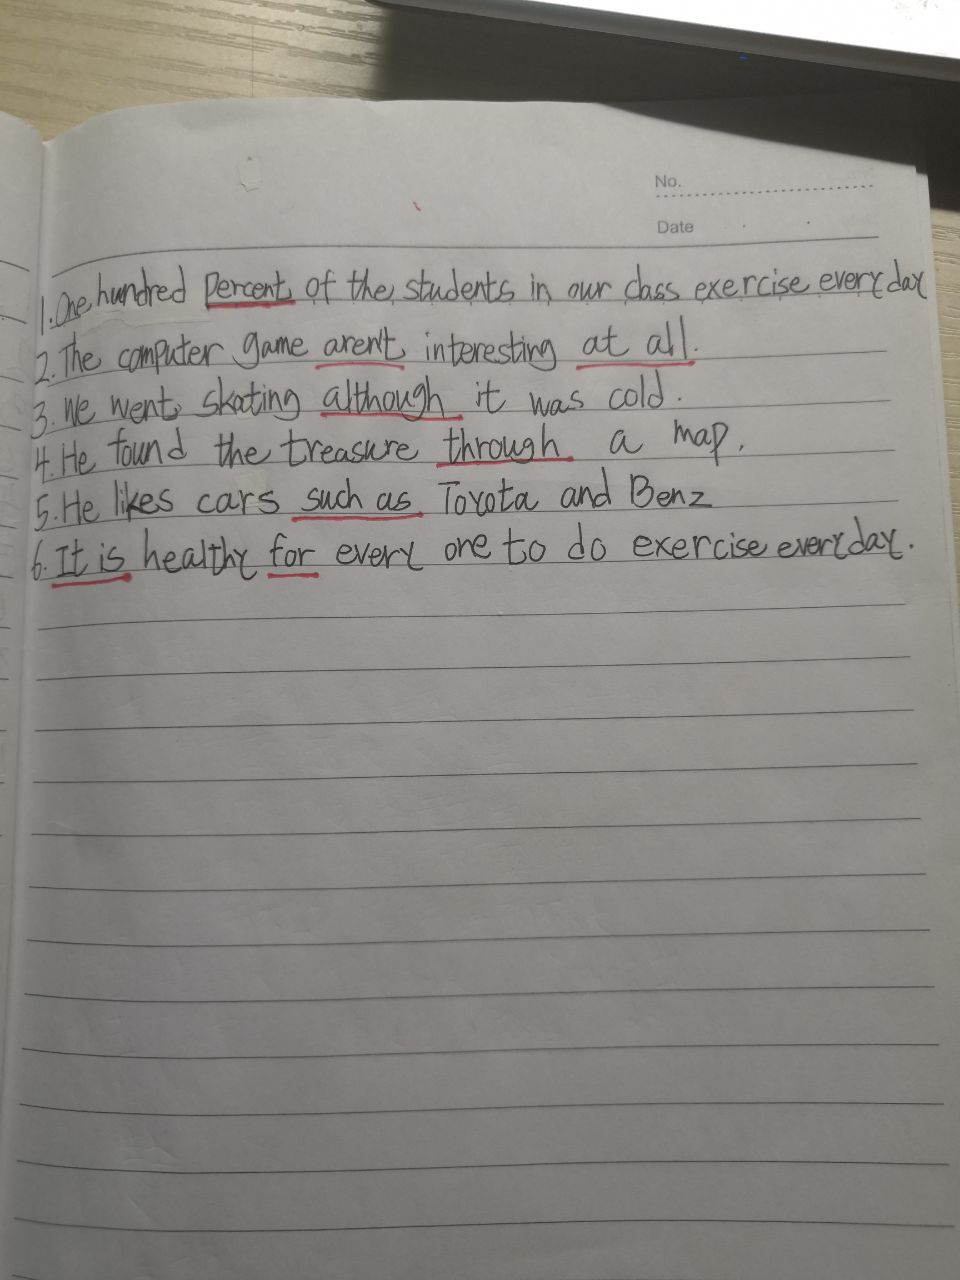 No.
Date
1. One hundred Percent of the students in our class exercise everyday
2. The computer game aren't interesting at all.
3. We went skating although it was cold.
4. He found the treasure through a map.
5. He likes cars such as Toyota and Benz
6. It is healthy for every one to do exercise everyday.